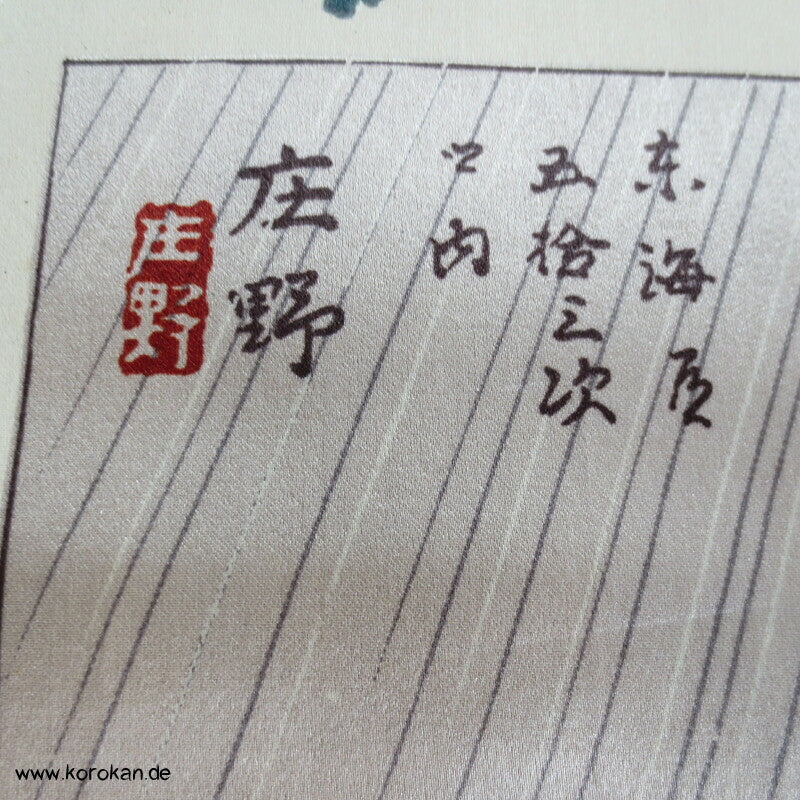 东海道
五拾三次
之内
庄野
庄野
www.korokan.de